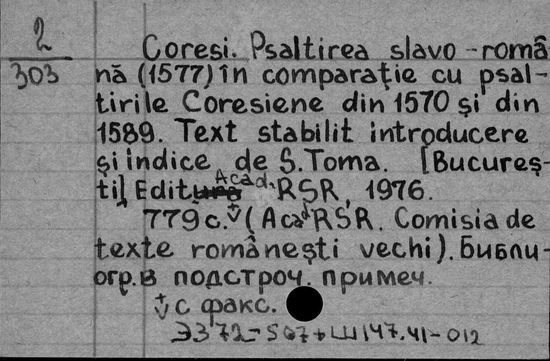 2
303
Coresi. Psaltirea slavo-româ
nă (1577) în comparaţie cu psal-
tirile Coresiene din 1570 şi din
1589. Text stabilit introducere
şi indice de S. Toma. [Bucureş-
ti] Edit. Acad. RSR, 1976.
779 с. (Acad RSR. Comisia de
texte româneşti vechi). Библи-
огр. в подстроч. примеч.
с факс.
Э372-507+Ш147.41-012